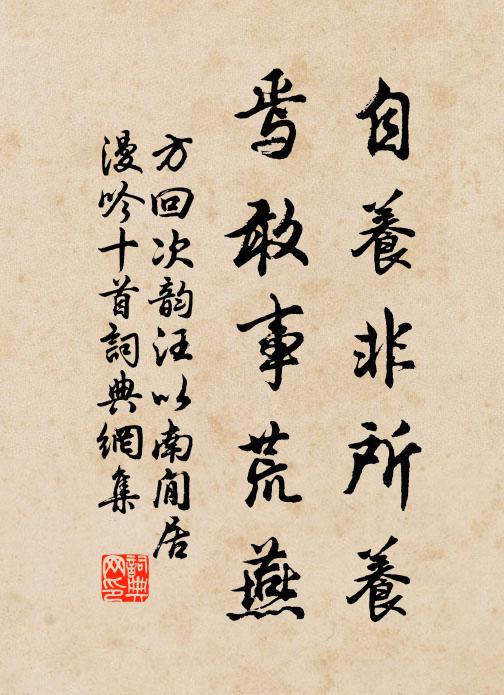 自養非所養
焉敢事荒燕
方回次韵汪以南閒居
漫吟十首詞典網集
詞典網印